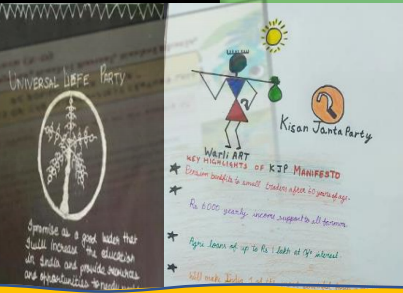 UNIVERSAL LIFE PARTY
I promise as a good leader that
I will increase the education
in India and provide resources
and opportunities to needy
Warli ART
Kisan Janta Party
KEY HIGHLIGHTS OF KJP MANIFESTO
Pension benefits to small traders after 60 years of age.
Rs 6000 yearly income support to all farmers
Agri loans of up to Rs 1 lakh at 0% interest.
Will make India